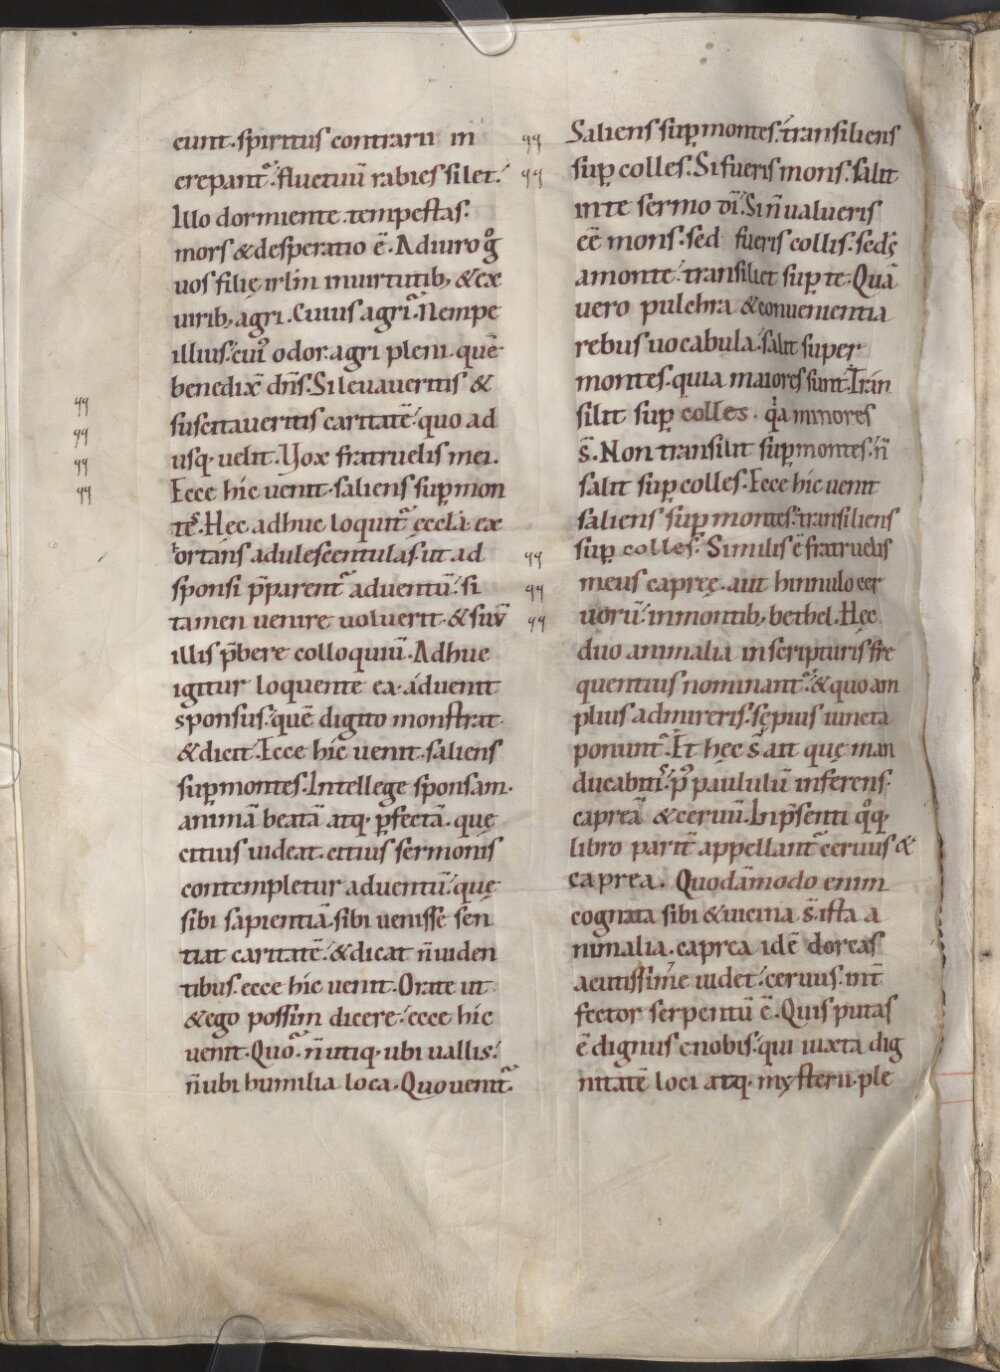 cunt. spiritus contrarii in
crepant᷑. fluctuū rabies silet.
Illo dormiente. tempestas.
mors & desperatio ē. Adiuro g̊
uos filię irlm̄ in uirtutib; & ex
uirib; agri. Cuius agri᷑. Nempe
illius. cui᷒ odor. agri pleni. quē
benedix̄ dn̄s. Si leuaueritis &
suscitaueritis caritatē. quo ad
usq; uelit. Vox fratruelis mei.
Ecce hic uenit. saliens sup̲ mon
tes. Hęc adhuc loquit᷑ ęccła. ex
ortans adulescentulas. ut ad
sponsi p̄parent᷑ aduentū. si
tamen uenire uoluerit. & suū
illis p̄bere colloquiū. Adhuc
igitur loquente ea. aduenit
sponsus. quē digito monstrat.
& dicit. Ecce hic uenit. saliens
sup̲ montes. Intellege sponsam.
animā beatā atq; p̲fectā. quę
citius uideat. citius sermonis
contempletur aduentū. quę
sibi sapientiā. sibi uenisse sen
tiat caritatē. & dicat n̄ uiden
tibus. ecce hic uenit. Orate ut
& ego possim dicere. ecce hic
uenit. Quo᷑. n̄ utiq; ubi uallis.
n̄ ubi humilia loca. Quo uenit᷑.
Saliens sup̲ montes. transiliens
sup̲ colles. Si fueris mons. salit
in te sermo dī. Si n̄ ualueris
eē mons. sed fueris collis. sed ę̄
a monte. transiliet sup̲ te. Quā
uero pulchra & conuenientia
rebus uocabula. salit super
montes. quia maiores sunt. Tran
silit sup̲ colles. qa minores
s̄. Non transilit sup̲ montes. n̄
salit sup̲ colles. Ecce hic uenit
saliens sup̲ montes. transiliens
sup̲ colles. Similis ē fratruelis
meus capreę. aut hinnulo cer
uorū. in montib; bethel. Hęc
duo animalia in scripturis fre
quentius nominant᷑. & quo am
plius admireris. sępius iuncta
ponunt᷑. Et hęc s̄ ait quę man
ducabit᷑. p᷒ paululū inferens.
capreā & ceruū. In p̄senti qo̊q;
libro parit̄ appellant᷑ ceruus &
caprea. Quodāmodo enim
cognata sibi & uicina s̄ ista a
nimalia. caprea idē dorcas
acutissime uidet. ceruus. int̄
fector serpentū ē. Quis putas
ē dignus e nobis. qui iuxta dig
nitatē loci atq; mysterii. ple